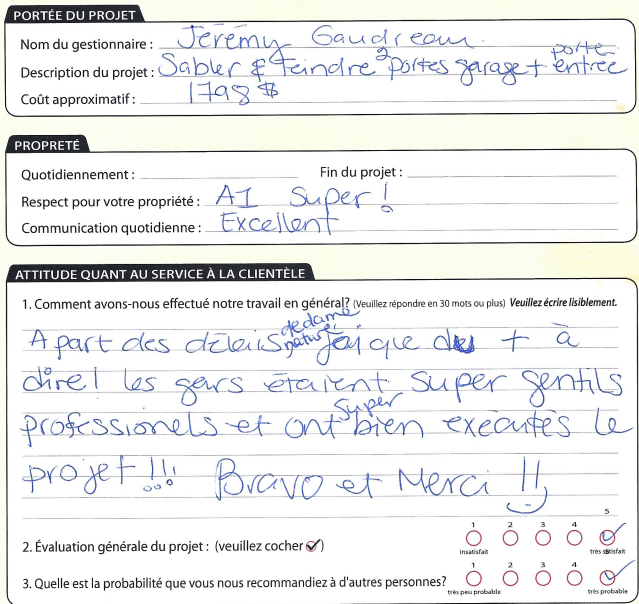 PORTÉE DU PROJET
Nom du gestionnaire : Jérémy Gaudreau
Description du projet : Sabler & teindre 2 portes garage + porte entrée
Coût approximatif : 1798 $
PROPRETÉ
Quotidiennement : Fin du projet :
Respect pour votre propriété : A1 Super !
Communication quotidienne : Excellent
ATTITUDE QUANT AU SERVICE À LA CLIENTÈLE
1. Comment avons-nous effectué notre travail en général? (Veuillez répondre en 30 mots ou plus) Veuillez écrire lisiblement.
A part des délais de dame nature j'ai que du + à
dire! les gars étaient super gentils
professionels et ont super bien exécutés le
projet !!! Bravo et Merci !!
2. Évaluation générale du projet : (veuillez cocher ✓) 1 2 3 4 5
insatisfait très satisfait
3. Quelle est la probabilité que vous nous recommandiez à d'autres personnes? 1 2 3 4 5
très peu probable très probable